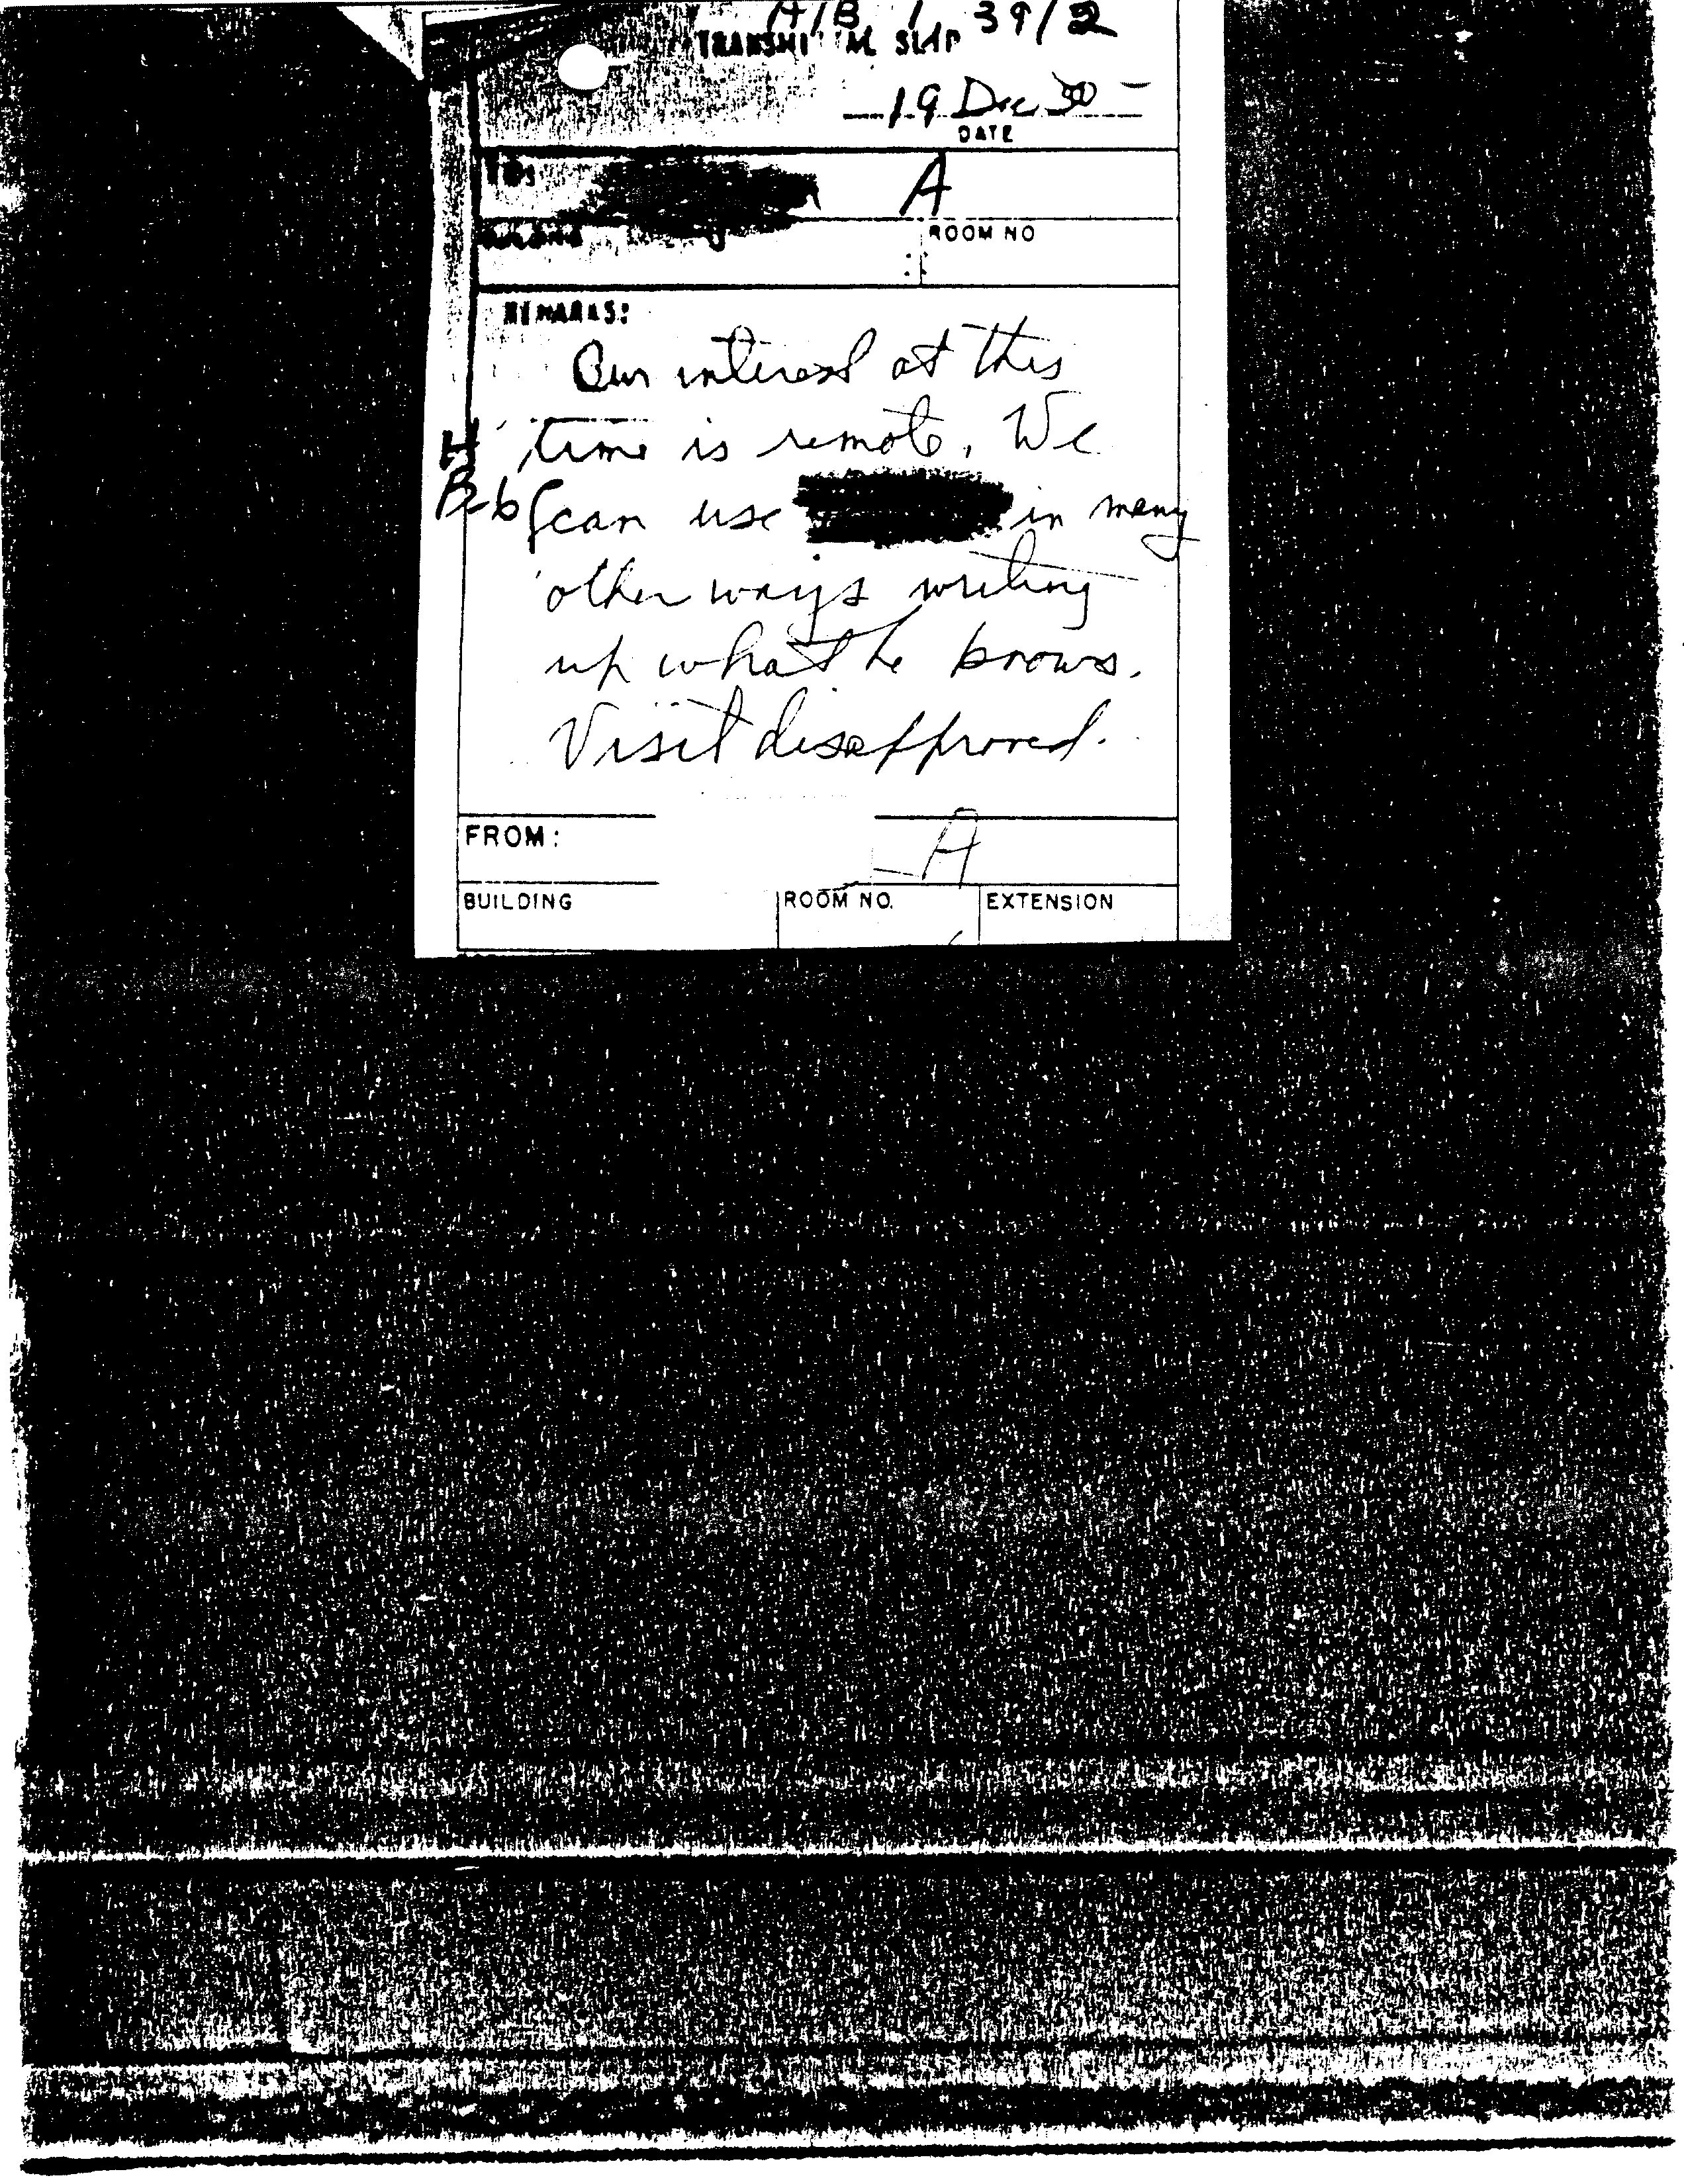 A/B 1 39/2
TRANSMITTAL SLIP
19 Dec 50
DATE
TO: A
ROOM NO
REMARKS:
Our interest at this
H time is remote. We
B-6 can use in many
other ways writing
up what he knows.
Visit disapproved.
FROM: A
BUILDING ROOM NO. EXTENSION